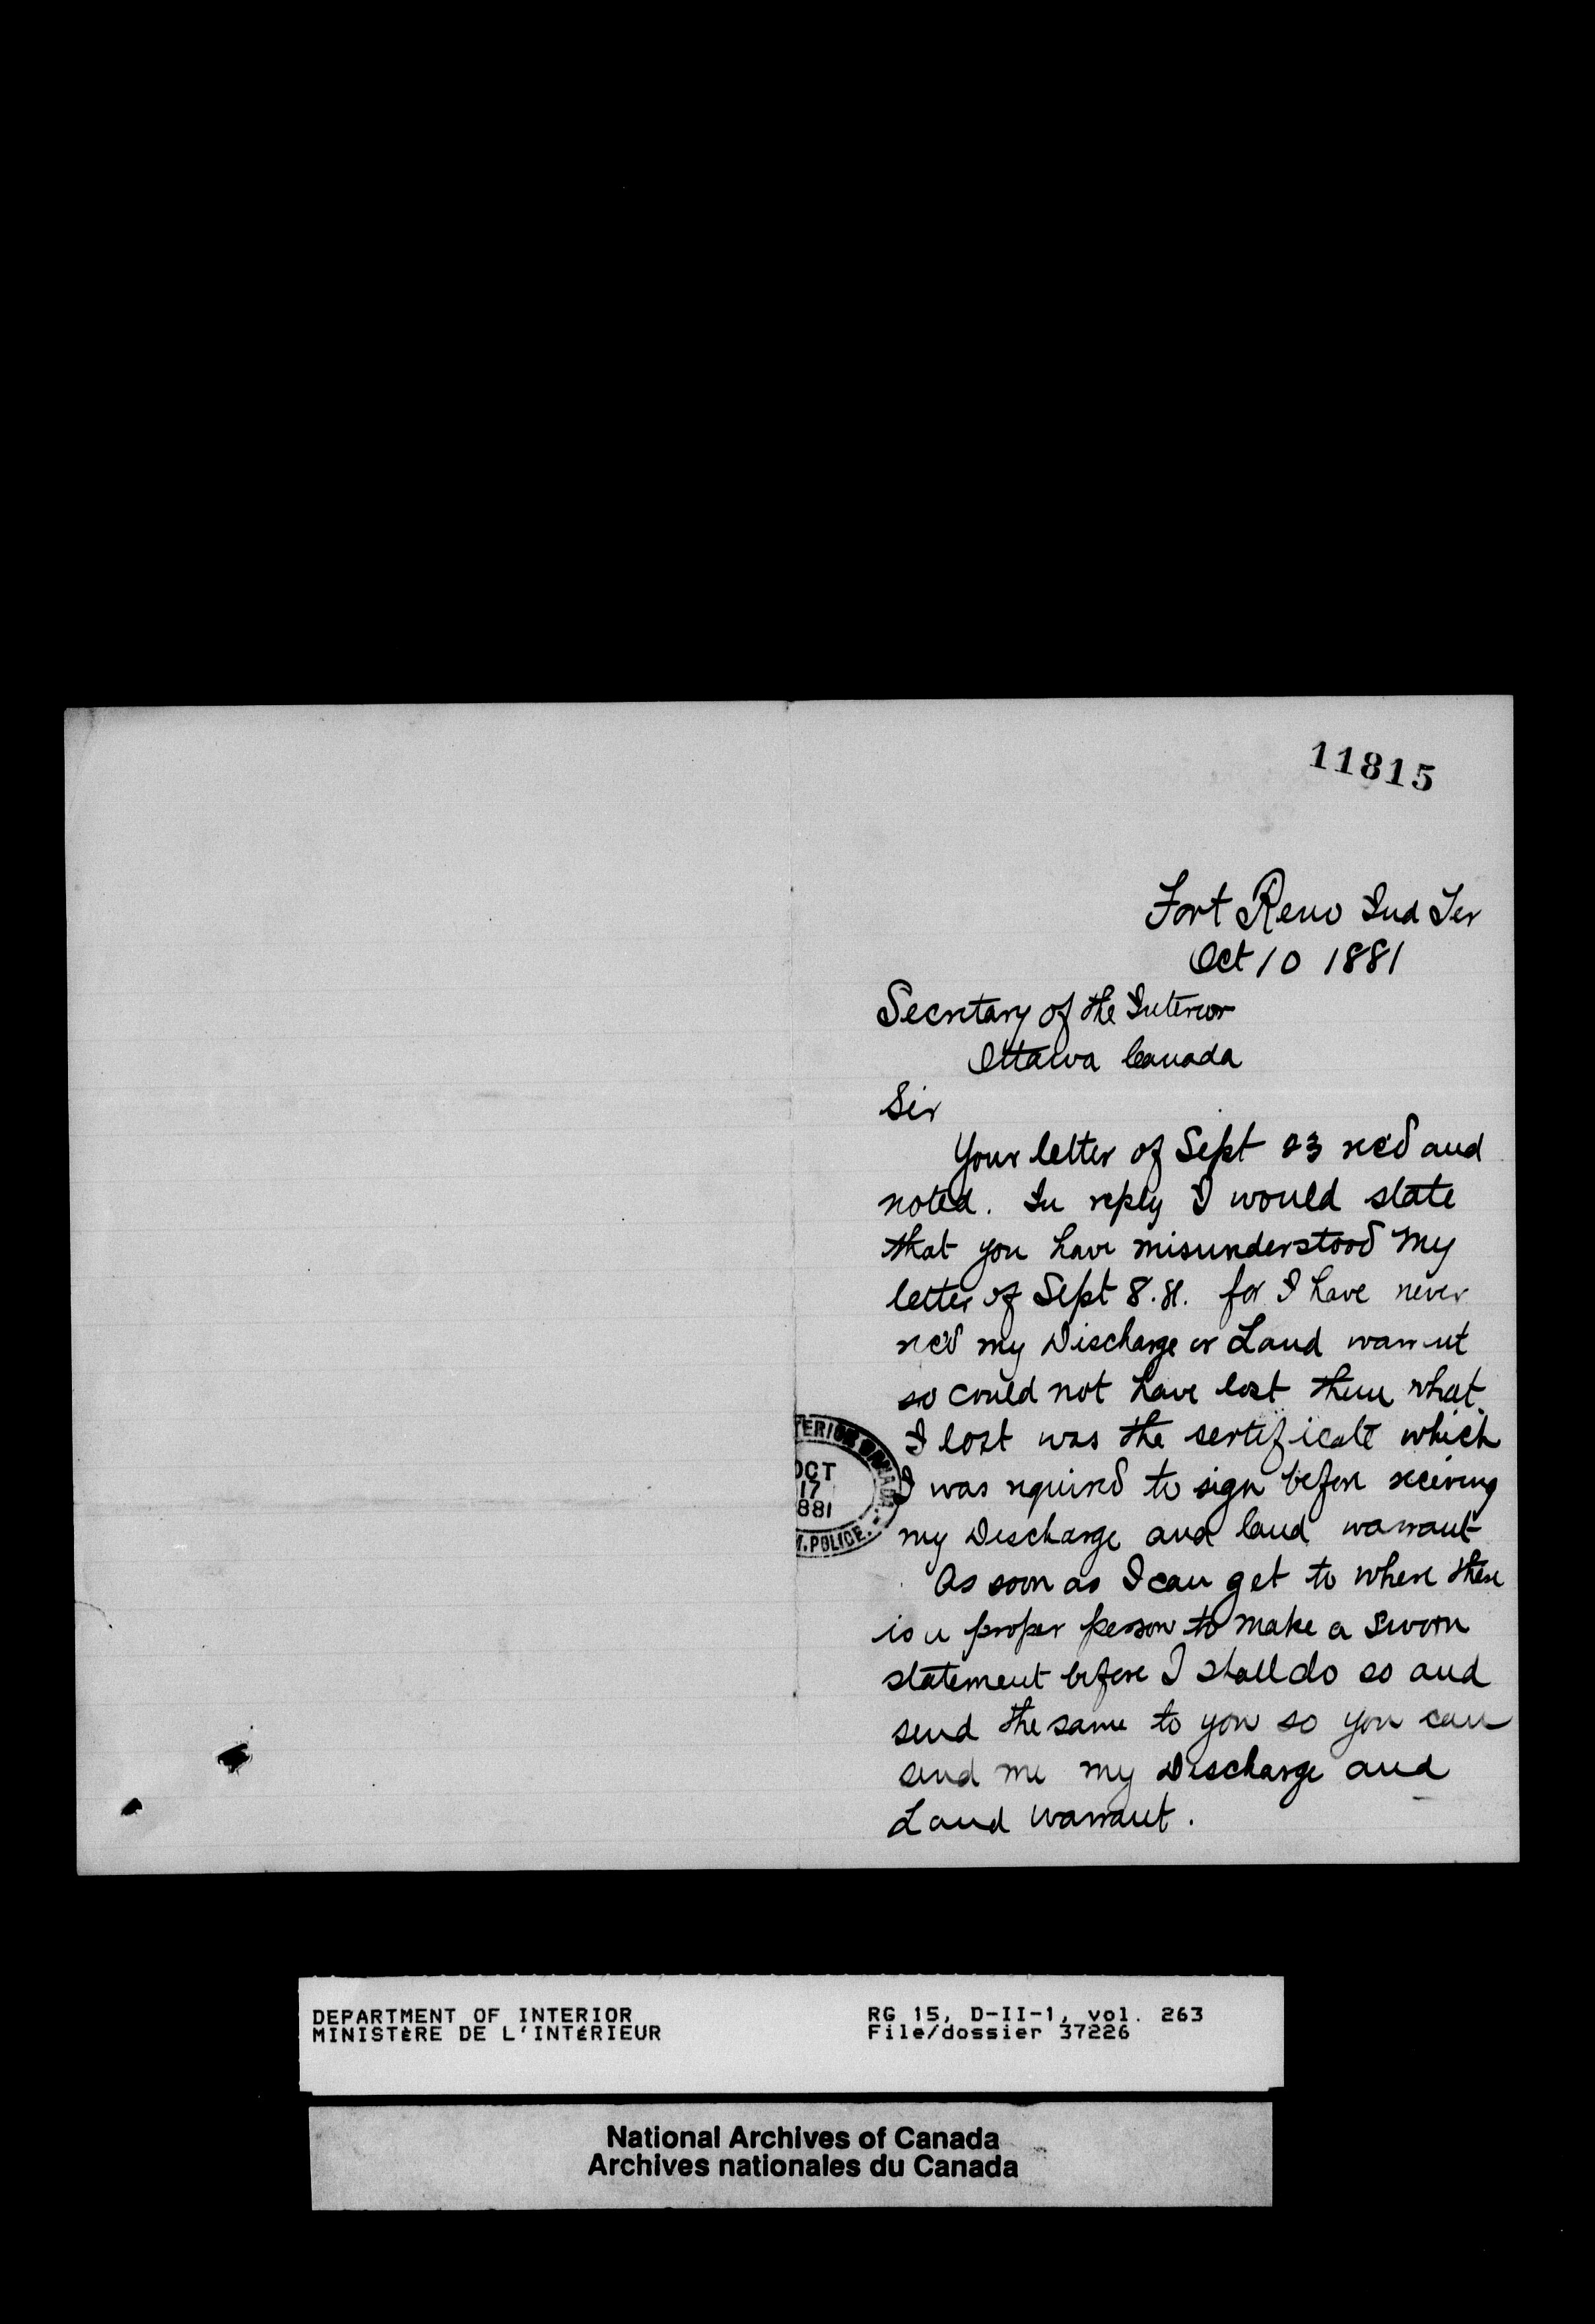 11815
Fort Reno Ind Ter
Oct 10 1881
Secretary of the Interior
Ottawa Canada
Sir
Your letter of Sept 23 rec'd and
noted. In reply I would state
that you have misunderstood my
letter of Sept 8.81. for I have never
rec'd my Discharge or Land warrant
so could not have lost them what
I lost was the sertificate which
I was required to sign before receiving
my Discharge and land warrant
As soon as I can get to where there
is a proper person to make a sworn
statement before I shall do so and
send the same to you so you can
send me my Discharge and
Land warrant.
TERIOR
OCT
17
881
M.POLICE.
DEPARTMENT OF INTERIOR
MINISTÈRE DE L'INTÉRIEUR
RG 15, D-II-1, vol. 263
File/dossier 37226
National Archives of Canada
Archives nationales du Canada